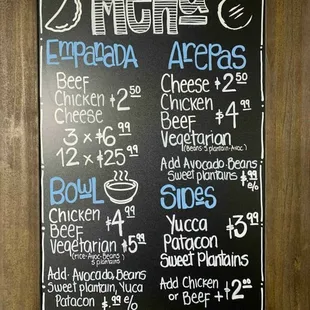 Menu
Empanada
Beef
Chicken $2.50
Cheese
3 x $6.99
12 x $25.99
Arepas
Cheese $2.50
Chicken
Beef $4.99
Vegetarian
(Beans s plantain-Avoc.)
Add Avocado.Beans
Sweet plantains $.99 e/o
Bowl
Chicken
Beef $4.99
Vegetarian $5.99
(rice-Avoc-Beans
s plantains)
Add. Avocado, Beans
Sweet plantain, Yuca
Patacon $.99 e/o
Sides
Yucca $3.99
Patacon
Sweet Plantains
Add Chicken
or Beef + $2.00